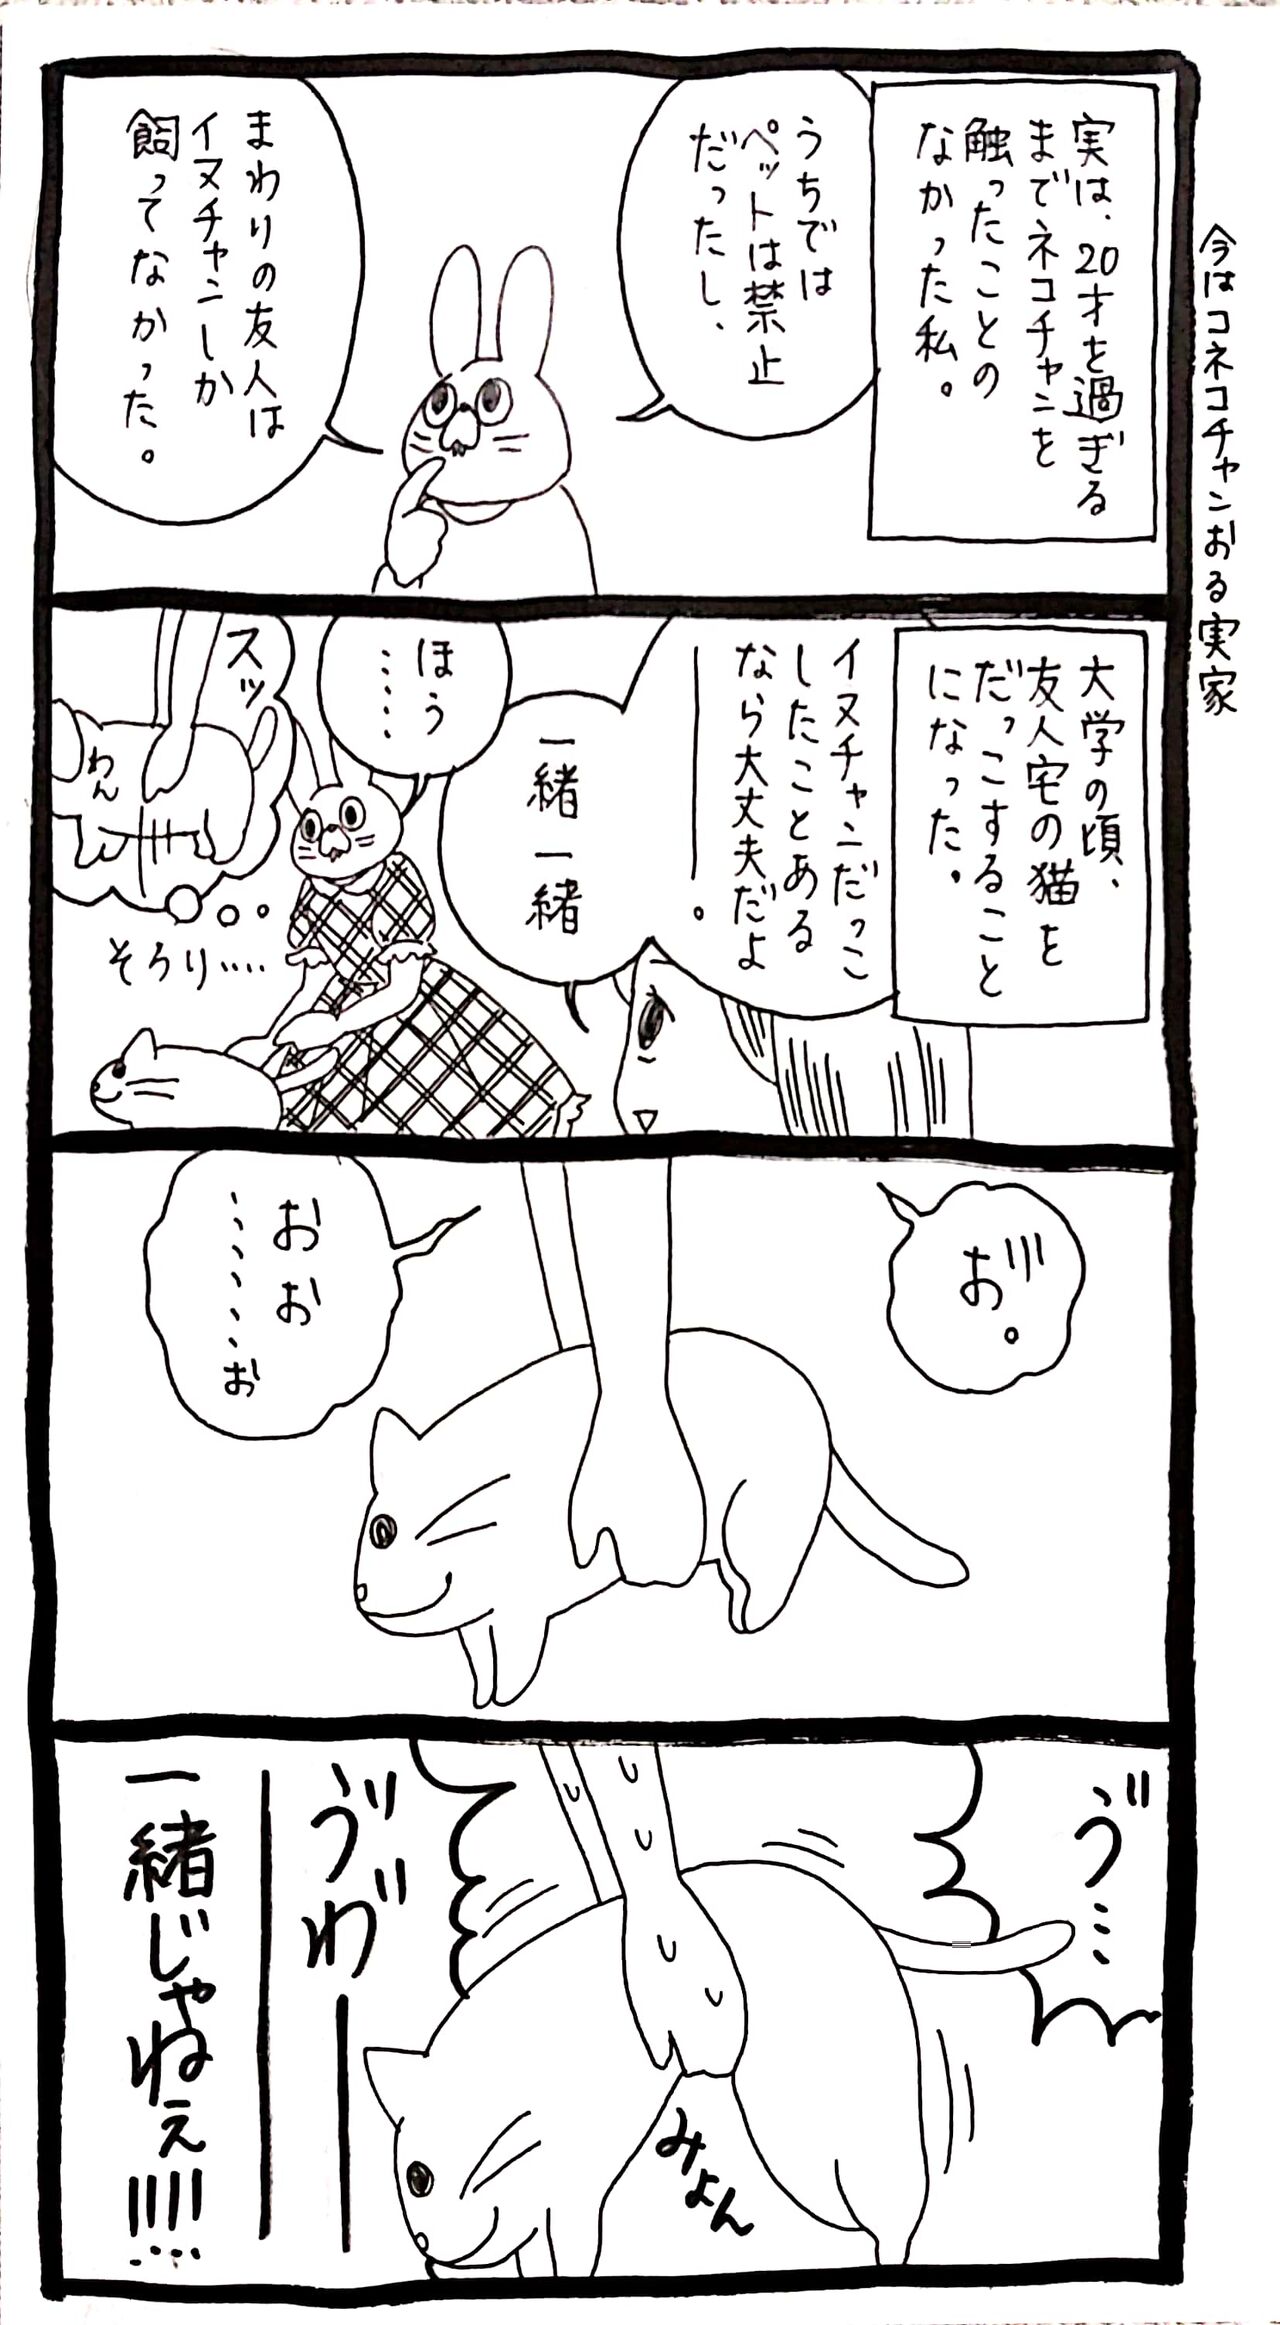 今はコネコチャンおる実家
実は、20才を過ぎる
までネコチャンを
触ったことの
なかった私。
うちでは
ペットは禁止
だったし、
まわりの友人は
イヌチャンしか
飼ってなかった。
大学の頃、
友人宅の猫を
だっこすること
になった。
イヌチャンだっこ
したことある
なら大丈夫だよ
――。
一緒一緒
ほう
……
スッ
わん
そろり‥‥
お。
おお
……お
ゔ…
みょん
ゔわ゙――
一緒じゃねえ!!!!